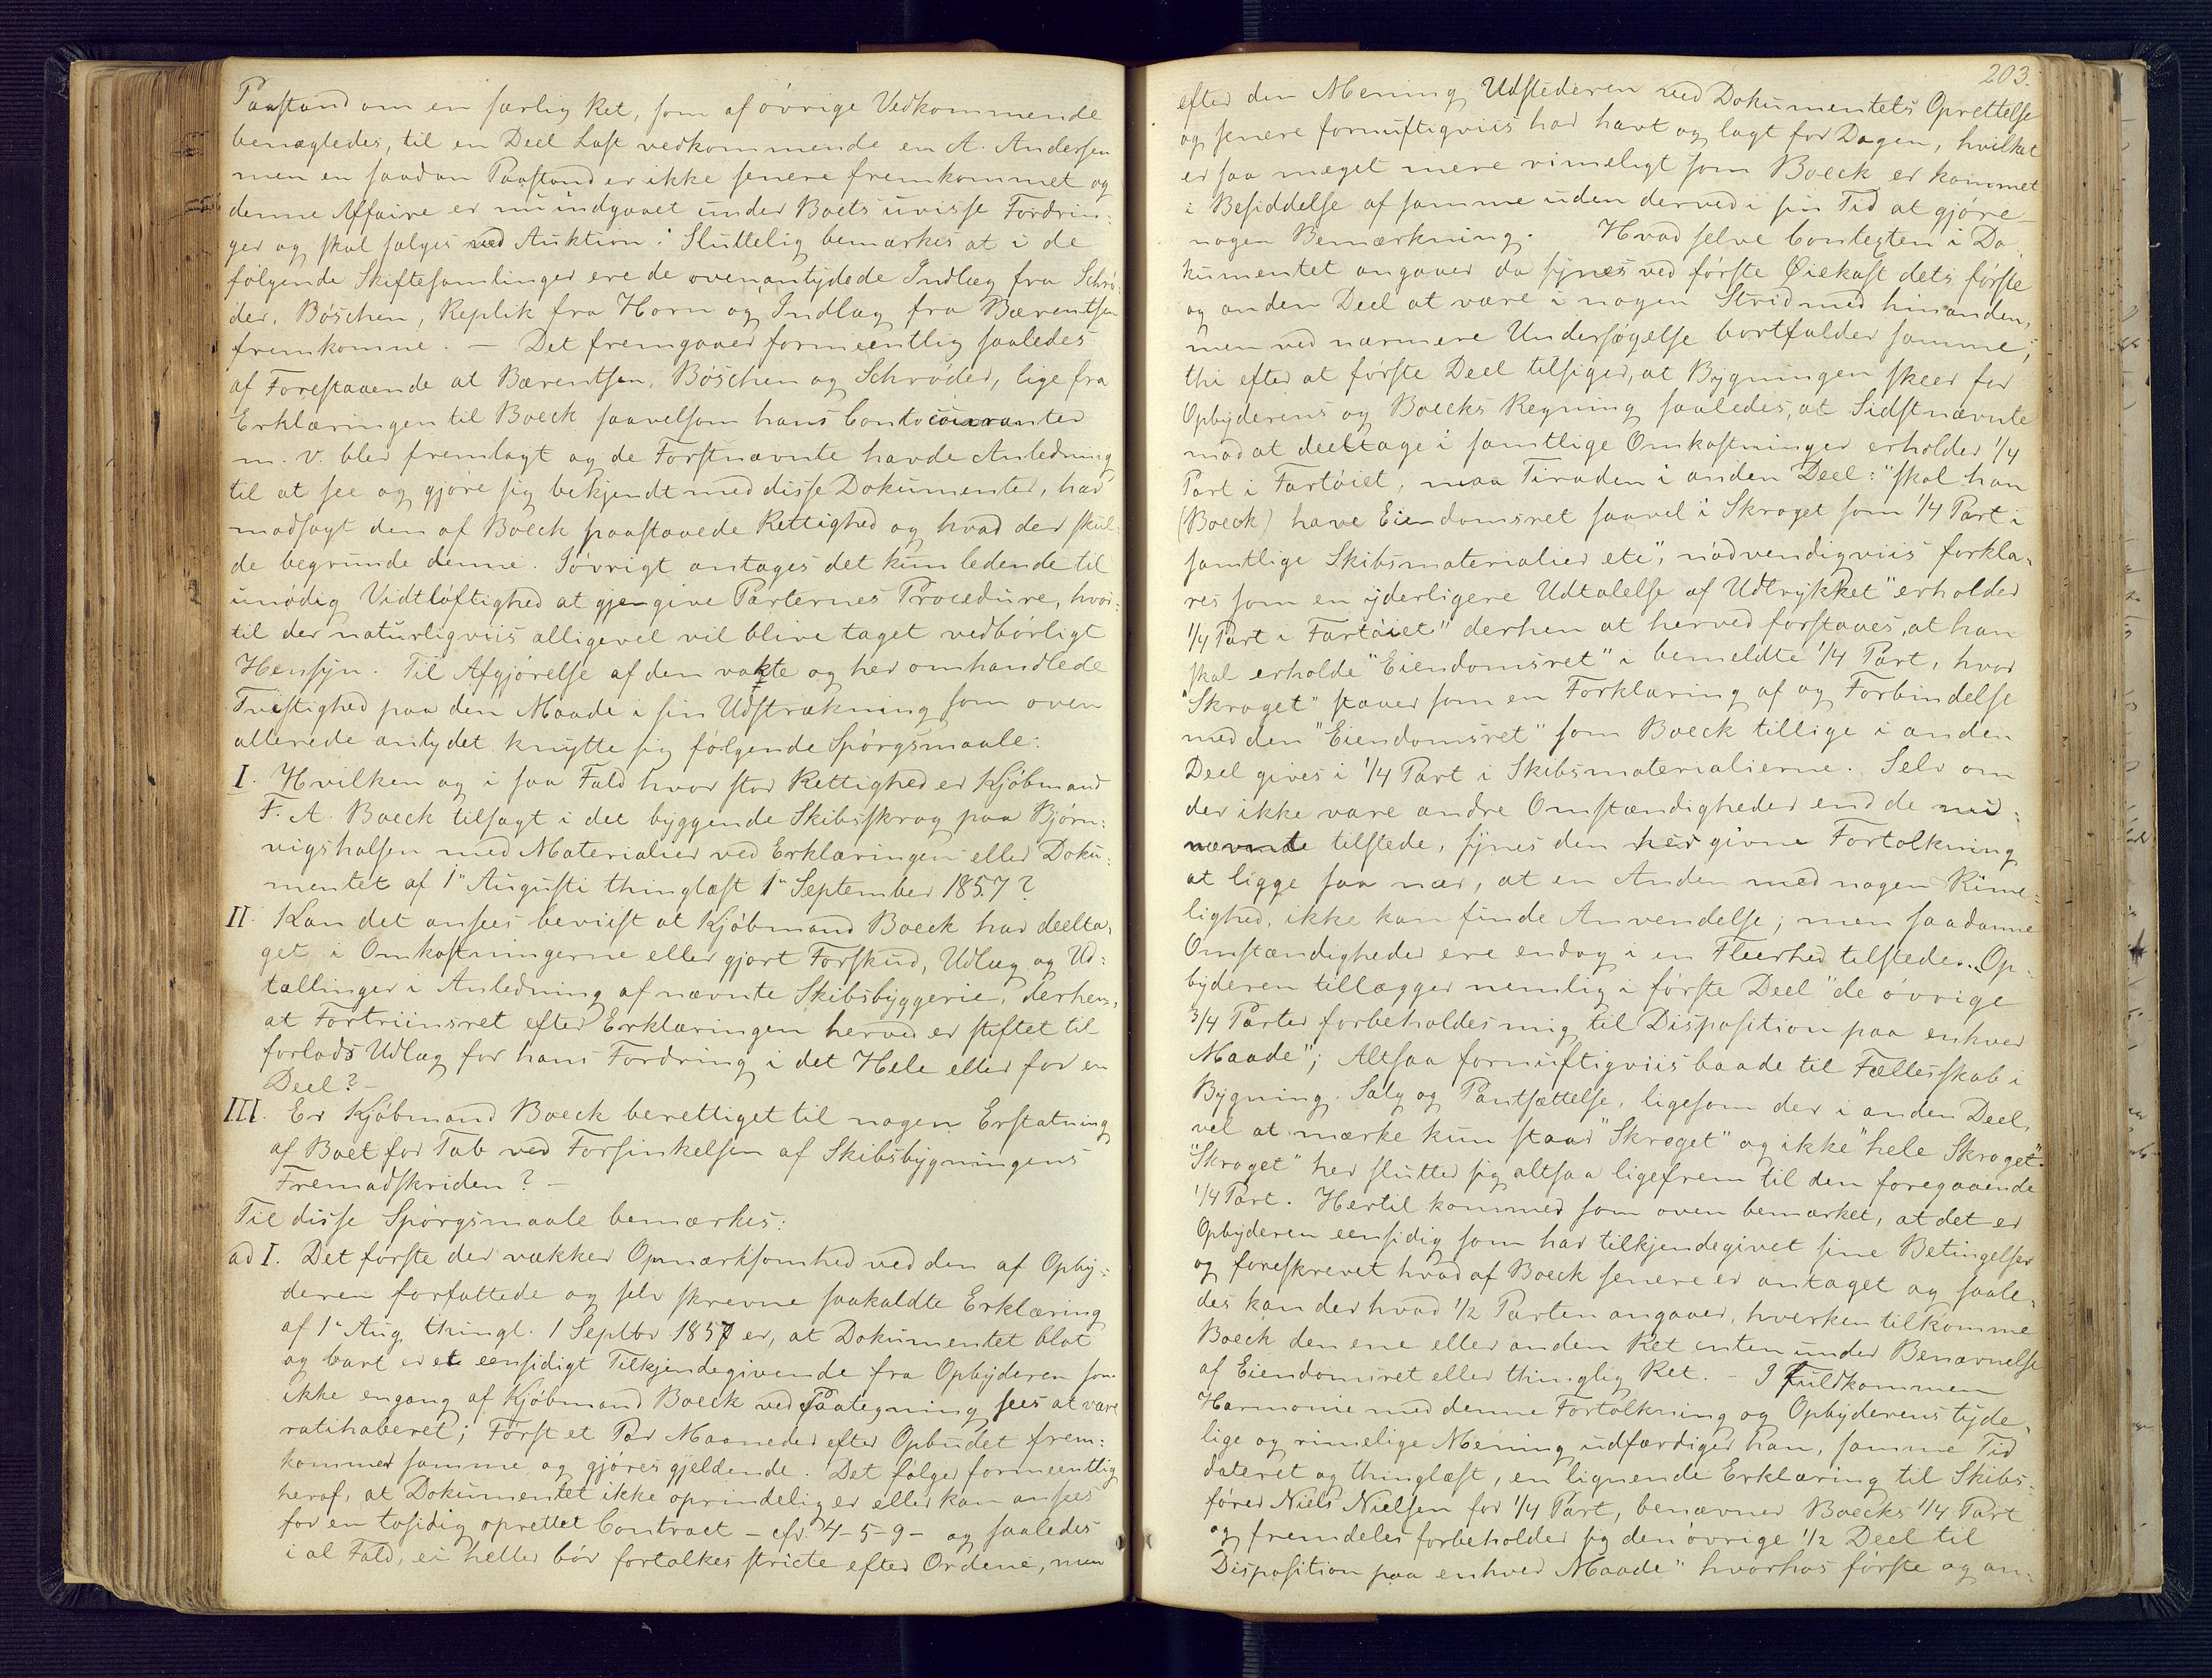 Paastand om en særlig Ret, som af øvrige Vedkommende
benægtedes, til en Deel Last vedkommende en A. Andersen
men en saadan Paastand er ikke senere fremkommet og
denne Affaire er nu indgaaet under Boets uvisse Fordrin-
ger og skal sælges ved Auktion. Sluttelig bemærkes at i de
følgende Skiftesamlinger ere de ovenantydede Indlæg fra Schrø-
der, Bøschen, Replik fra Horn og Indlæg fra Bærentsen
fremkomne. — Det fremgaaer formeentlig saaledes
af Forestaaende at Bærentsen, Bøschen og Schrøder, lige fra
Erklæringen til Boeck saavelsom hans Contocouranter
m. v. blev fremlagt og de Førstnævnte havde Anledning
til at see og gjøre sig bekjendt med disse Dokumenter, har
modsagt den af Boeck paastaaede Rettighed og hvad der skul-
de begrunde denne. Iøvrigt antages det kun ledende til
unødig Vidtløftighed at gjengive Parternes Procedure, hvor-
til der naturligviis alligevel vil blive taget vedbørligt
Hensyn. Til Afgjørelse af den vakte og her omhandlede
Tvistighed paa den Maade i sin Udstrækning som oven
allerede antydet knytte sig følgende Spørgsmaale:
I. Hvilken og i saa Fald hvor stor Rettighed er Kjøbmand
F. A. Boeck tilsagt i det byggende Skibsskrog paa Bjørn-
vigshalsen med Materialier ved Erklæringen eller Doku-
mentet af 1ᵉ Augusti thinglæst 1ᵉ September 1857?
II. Kan det ansees beviist at Kjøbmand Boeck har deelta-
get i Omkostningerne eller gjort Forskud, Udlæg og Ud-
tællinger i Anledning af nævnte Skibsbyggerie, derhen,
at Fortriinsret efter Erklæringen herved er stiftet til
forlods Udlæg for hans Fordring i det Hele eller for en
Deel? —
III. Er Kjøbmand Boeck berettiget til nogen Erstatning
af Boet for Tab ved Forsinkelsen af Skibsbygningens
Fremadskriden? —
Til disse Spørgsmaale bemærkes:
ad I. Det første der vækker Opmærksomhed ved den af Opby-
deren forfattede og selv skrevne saakaldte Erklæring
af 1ᵉ Aug. thingl. 1 Septbr 1857 er, at Dokumentet blot
og bart er et eensidigt Tilkjendegivende fra Opbyderen som
ikke engang af Kjøbmand Boeck ved Paategning sees at være
ratihaberet; Først et Par Maaneder efter Opbudet frem-
kommer samme og gjøres gjeldende. Det følger formeentlig
heraf, at Dokumentet ikke oprindelig er eller kan ansees
for en tosidig oprettet Contract — cfr. 4-5-9- og saaledes
i al Fald, ei heller bør fortolkes stricte efter Ordene, men
203.
efter den Mening Udstederen ved Dokumentets Oprettelse
og senere fornuftigviis har havt og lagt for Dagen, hvilket
er saa meget mere rimeligt som Boeck er kommet
i Besiddelse af samme uden derved i sin Tid at gjøre
nogen Bemærkning. Hvad selve Contexten i Do-
kumentet angaaer da synes ved første Øiekast dets første
og anden Deel at være i nogen Strid med hinanden,
men ved nærmere Undersøgelse bortfalder samme;
thi efter at første Deel tilsiger, at Bygningen skeer for
Opbyderens og Boecks Regning saaledes, at Sidstnævnte
mod at deeltage i samtlige Omkostninger erholder 1/4
Part i Fartøiet, maa Tiraden i anden Deel: "skal han
(Boeck) have Eiendomsret saavel i Skroget som 1/4 Part i
samtlige Skibsmaterialier etc", nødvendigviis forkla-
res som en yderligere Udtalelse af Udtrykket "erholder
1/4 Part i Fartøiet" derhen at herved forstaaes, at han
skal erholde "Eiendomsret" i bemeldte 1/4 Part, hvor
"Skroget" staaer som en Forklaring af og Forbindelse
med den "Eiendomsret" som Boeck tillige i anden
Deel gives i 1/4 Part i Skibsmaterialierne. Selv om
der ikke vare andre Omstændigheder end de nu
nævnte tilstede, synes den her givne Fortolkning
at ligge saa nær, at en Anden med nogen Rime-
lighed, ikke kan finde Anvendelse; men saadanne
Omstændigheder ere endog i en Fleerhed tilstede. Op-
byderen tillægger nemlig i første Deel "de øvrige
3/4 Parter forbeholdes mig til Disposition paa enhver
Maade"; Altsaa fornuftigviis baade til Fællesskab i
Bygning, Salg og Pantsættelse, ligesom der i anden Deel,
vel at mærke kun staaer "Skroget" og ikke "hele Skroget".
"Skroget" her slutter sig altsaa ligefrem til den foregaaende
1/4 Part. Hertil kommer som oven bemærket, at det er
Opbyderen eensidig som har tilkjendegivet sine Betingelser
og foreskrevet hvad af Boeck senere er antaget og saale-
des kan der hvad 1/2 Parten angaaer, hverken tilkomme
Boeck den ene eller anden Ret enten under Benævnelse
af Eiendomsret eller thinglig Ret. — I fuldkommen
Harmonie med denne Fortolkning og Opbyderens tyde-
lige og rimelige Mening udfærdiger han, samme Tid
dateret og thinglæst, en lignende Erklæring til Skibs-
fører Niels Nielsen for 1/4 Part, benævner Boecks 1/4 Part
og fremdeles forbeholder sig den øvrige 1/2 Deel til
Disposition paa enhver Maade" hvorhos første og an-